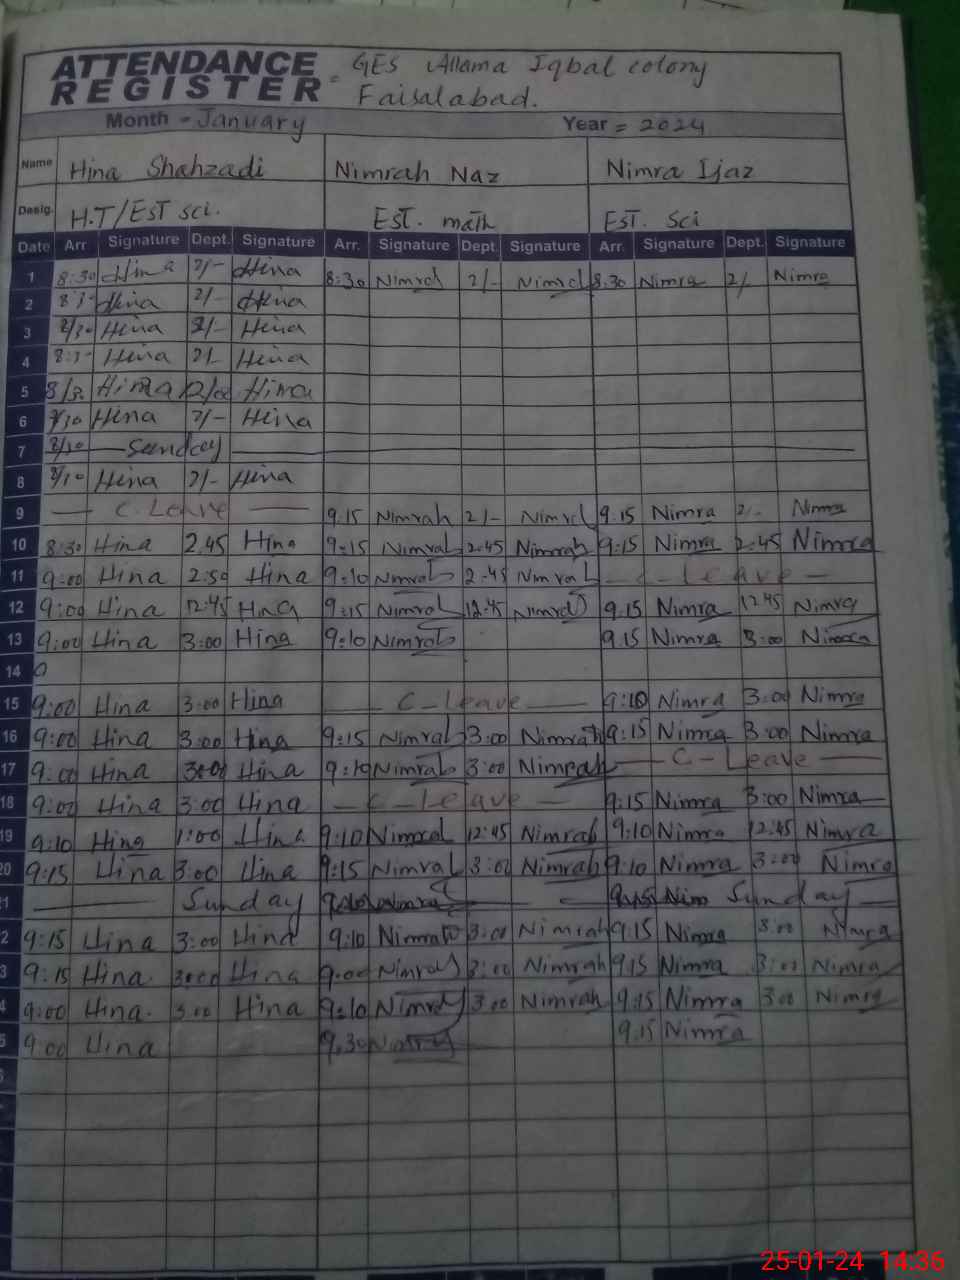 ATTENDANCE REGISTER = GES Allama Iqbal colony
Faisalabad.
Month = January Year = 2024
Name Hina Shahzadi Nimrah Naz Nimra Ijaz
Desig. H.T/EST sci. EST. math EST. sci
Date Arr. Signature Dept. Signature Arr. Signature Dept. Signature Arr. Signature Dept. Signature
1 8:30 Hina 2/- Hina 8:30 Nimrah 2/- Nimrah 8:30 Nimra 2/- Nimra
2 Hina 2/- Hina
3 8/30 Hina 2/- Hina
4 Hina 2/- Hina
5 Hina 12/00 Hina
6 Hina 2/- Hina
7 Sunday
8 Hina 2/- Hina
9 C. Leave 9.15 Nimrah 2/- Nimrah 9.15 Nimra 2/- Nimra
10 8:30 Hina 2.45 Hina 9:15 Nimrah 2:45 Nimrah 9:15 Nimra 2:45 Nimra
11 9:00 Hina 2:50 Hina 9:10 Nimrah 2:45 Nimrah C-Leave
12 9:00 Hina 12:45 Hina 9:15 Nimrah 12:45 Nimrah 9.15 Nimra 12:45 Nimra
13 9:00 Hina 3:00 Hina 9:10 Nimrah 9.15 Nimra 3:00 Nimra
14
15 9:00 Hina 3:00 Hina C-Leave 9:10 Nimra 3:00 Nimra
16 9:00 Hina 3:00 Hina 9:15 Nimrah 3:00 Nimrah 9:15 Nimra 3:00 Nimra
17 9:00 Hina 3:00 Hina 9:10 Nimrah 3:00 Nimrah C-Leave
18 9:00 Hina 3:00 Hina C-Leave 9:15 Nimra 3:00 Nimra
19 9:10 Hina 1:00 Hina 9:10 Nimrah 12:45 Nimrah 9:10 Nimra 12:45 Nimra
20 9:15 Hina 3:00 Hina 9:15 Nimrah 3:00 Nimrah 9:10 Nimra 3:00 Nimra
1 Sunday Sunday
2 9:15 Hina 3:00 Hina 9:10 Nimrah 3:00 Nimrah 9:15 Nimra 3:00 Nimra
3 9:15 Hina. 3:00 Hina 9:00 Nimrah 3:00 Nimrah 9:15 Nimra 3:00 Nimra
4 9:00 Hina. 3:00 Hina 9:10 Nimrah 3:00 Nimrah 9:15 Nimra 3:00 Nimra
5 9:00 Hina 9.30 9.15 Nimra
25-01-24 14:36